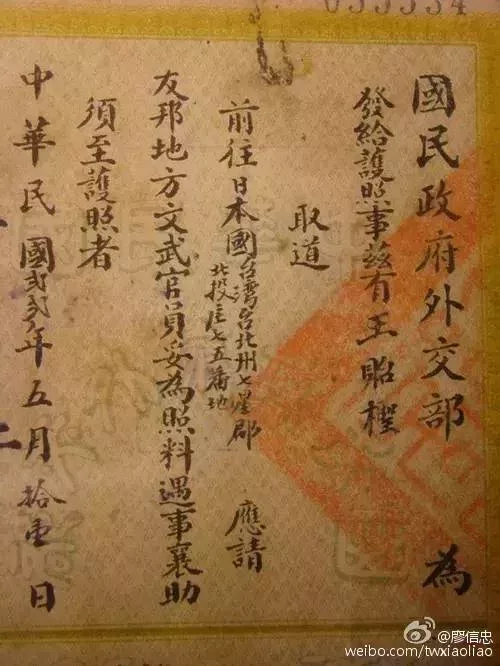 國民政府外交部 為
發給護照事茲有王昭橙
取道
前往日本國台灣台北州七星郡
北投庄七五番地 應請
友邦地方文武官員妥為照料遇事襄助
須至護照者
中華民國貳貳年五月拾壹日
廖信忠
weibo.com/twxiaoliao